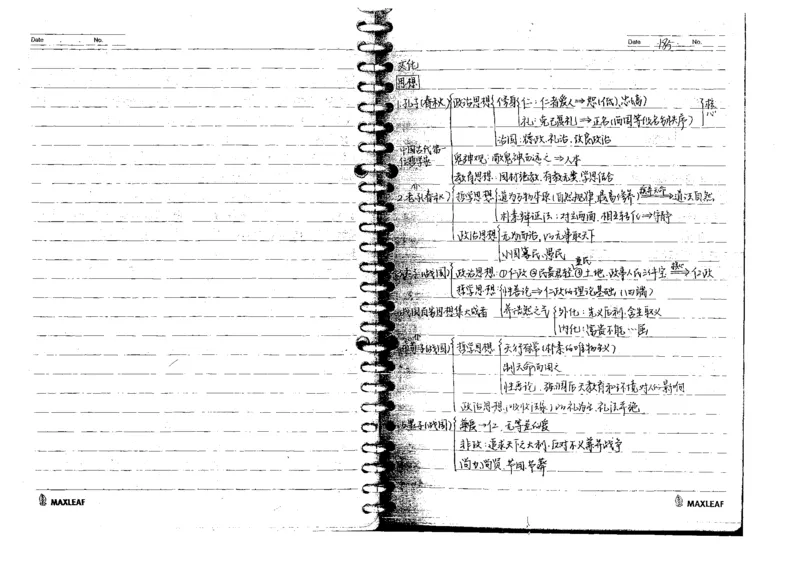 Date No.
Date 185 No.
文化
思想
1.孔子(春秋) 政治思想 仁:仁者爱人⇒恕(低),忠(高) 核心
礼:克己复礼⇒正名(等级名分秩序)
治国:德政,礼治,以民政治
中国古代第一位哲学家
鬼神观:敬鬼神而远之→人本
教育思想:因材施教,有教无类,学思结合
2.老子(春秋) 哲学思想 道为万物本原(自然规律,最高 道法自然
朴素辩证法:对立两面,相互转化→守静
政治思想 无为而治,以无事取天下
小国寡民,愚民
孟子(战国) 政治思想:①仁政②民贵君轻③土地、政事、人民三件宝 核心 仁政
重民
哲学思想 性善论⇒仁政的理论基础(四端)
战国百家思想集大成者
养浩然之气 外化:先义后利,舍生取义
内化:富贵不能…屈
荀子(战国) 哲学思想 天行有常(朴素的唯物主义)
制天命而用之
性恶论,强调后天教育和环境对人的影响
政治思想 以礼为主,礼法并施
5.墨子(战国) 兼爱→仁,无等差的爱
非攻:追求天下之大利,反对不义兼并战争
尚力,尚贤,节用,节葬
MAXLEAF
MAXLEAF